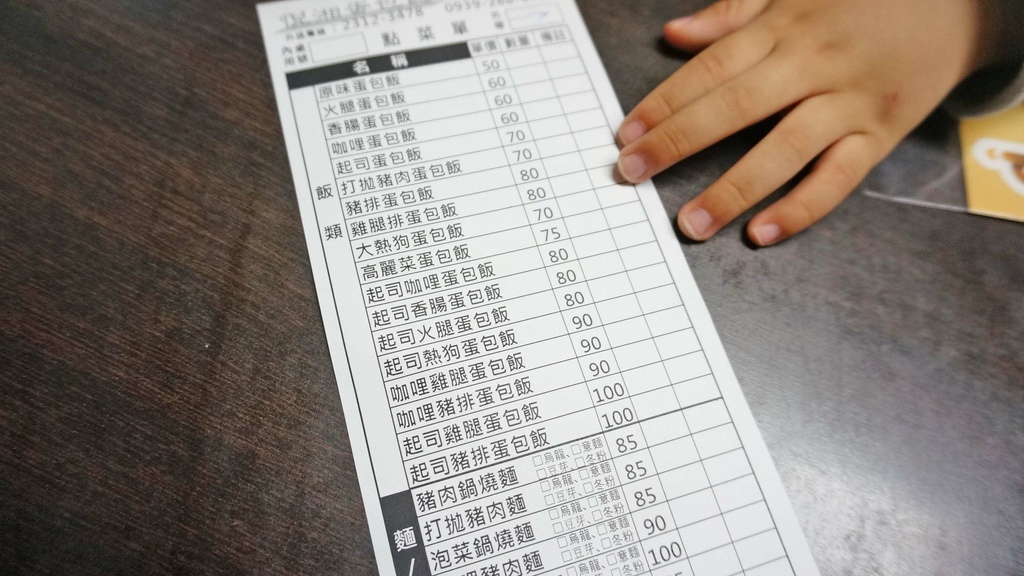 2312-3478 0939-
點菜單
名稱 單價 數量 備註
飯類
原味蛋包飯 50
火腿蛋包飯 60
香腸蛋包飯 60
咖哩蛋包飯 60
起司蛋包飯 70
打拋豬肉蛋包飯 70
豬排蛋包飯 80
雞腿排蛋包飯 80
大熱狗蛋包飯 70
高麗菜蛋包飯 75
起司咖哩蛋包飯 80
起司香腸蛋包飯 80
起司火腿蛋包飯 80
起司熱狗蛋包飯 90
咖哩雞腿蛋包飯 90
咖哩豬排蛋包飯 90
起司雞腿蛋包飯 100
起司豬排蛋包飯 100
麵/
豬肉鍋燒麵 □烏龍、□意麵 □豆芽、□冬粉 85
打拋豬肉麵 □烏龍、□意麵 □豆芽、□冬粉 85
泡菜鍋燒麵 □烏龍、□意麵 □豆芽、□冬粉 85
豬肉麵 □烏龍、□意麵 □豆芽、□冬粉 90
100